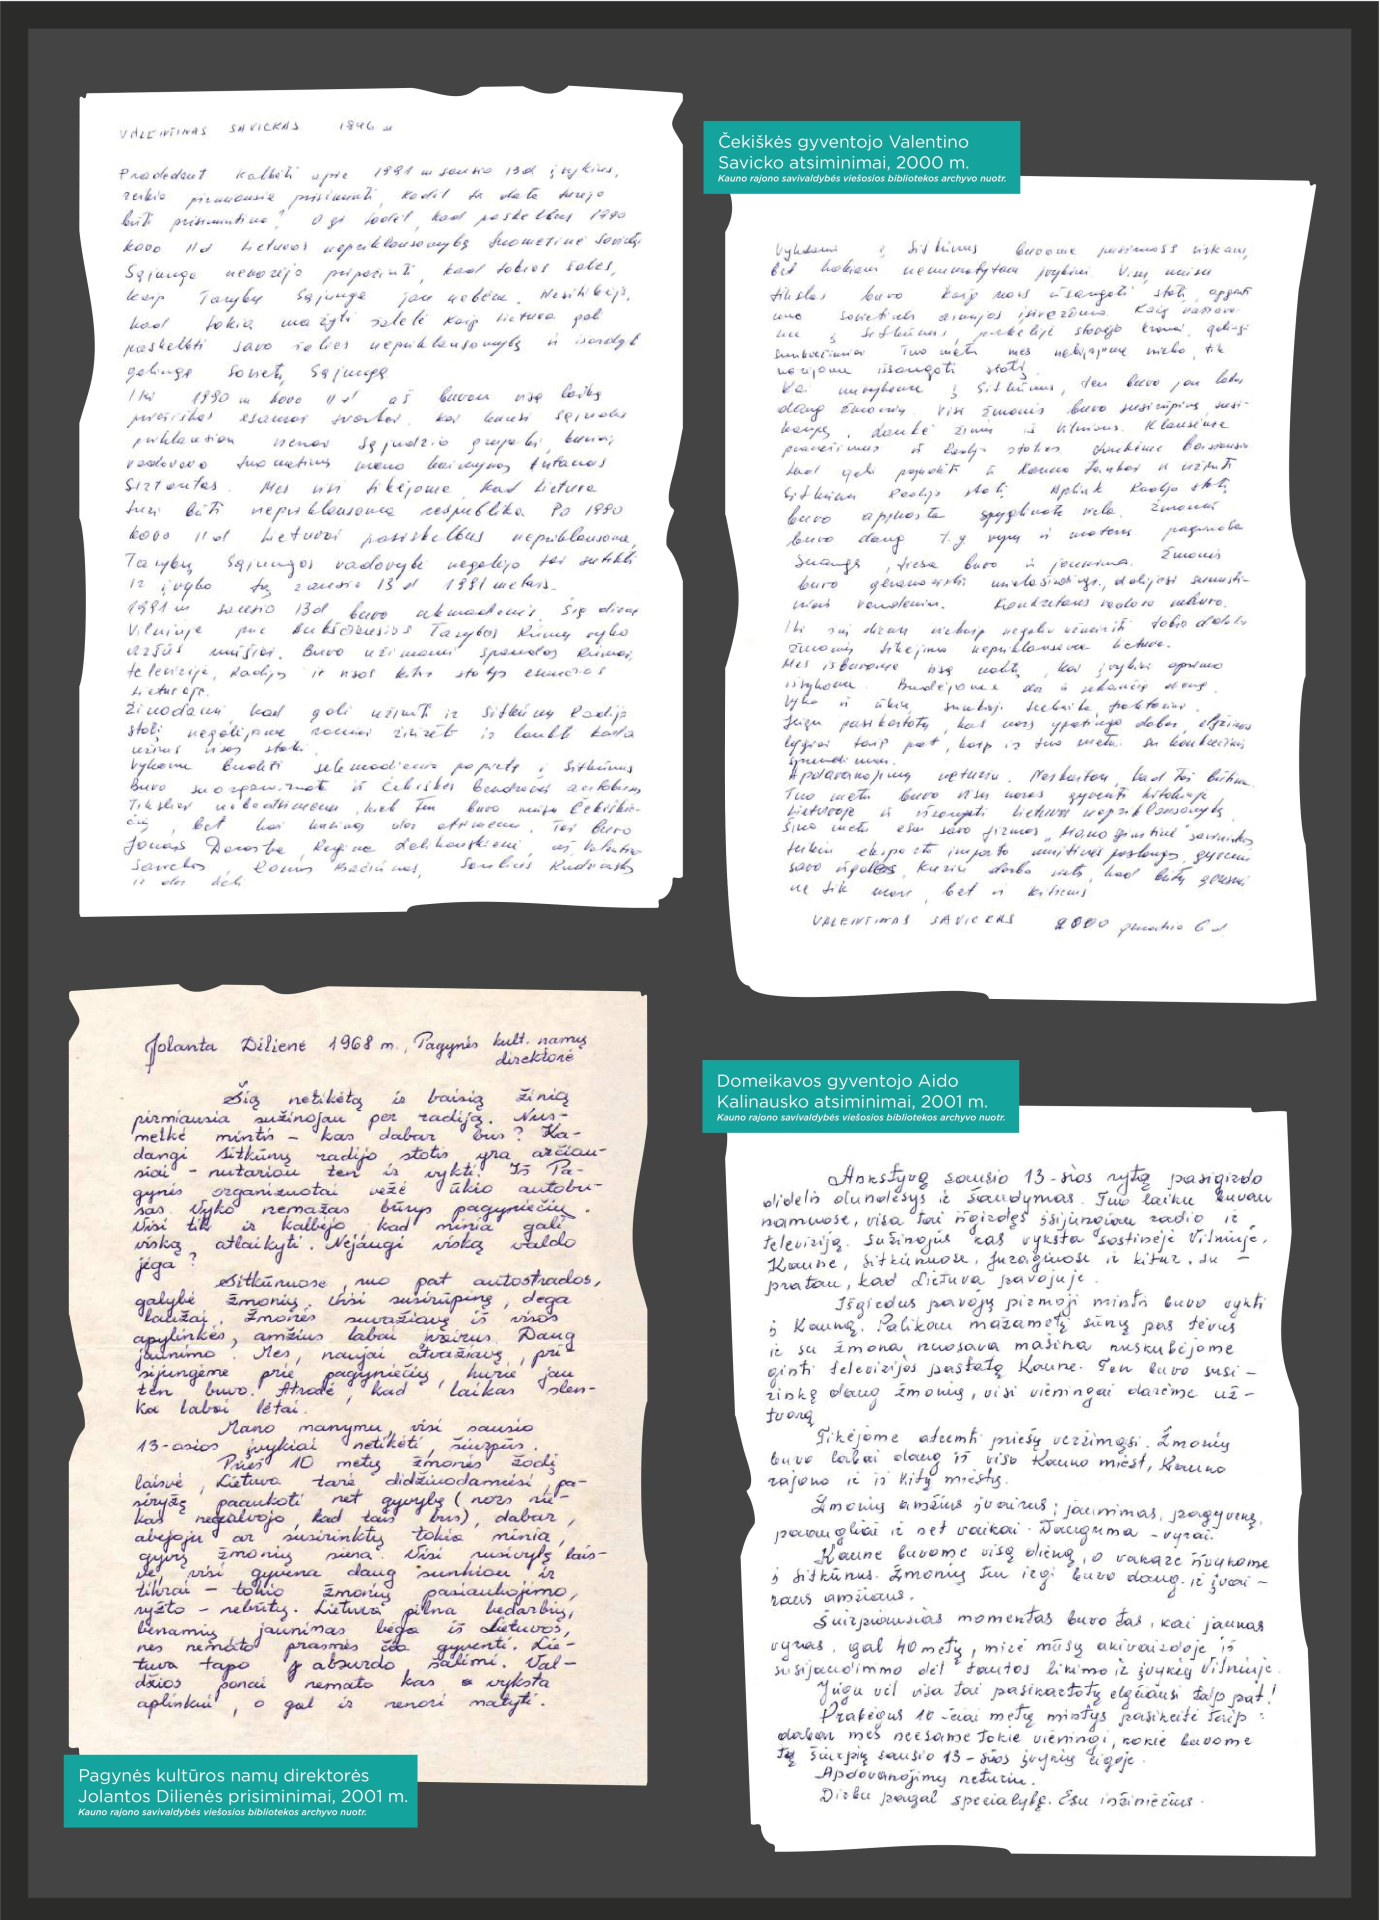 VALENTINAS SAVICKAS 1946 m
Pradedant kalbėti apie 1991 m sausio 13d įvykius,
reikia pirmiausia prisiminti, kodėl ta data turėjo
būti prisimintina? O gi todėl, kad paskelbus 1990
kovo 11d Lietuvos nepriklausomybę tuometinė Sovietų
Sąjunga nenorėjo pripažinti, kad tokios šalies,
kaip Tarybų Sąjunga jau nebėra. Nesitikėjo,
kad tokia mažytė šalelė kaip Lietuva gali
paskelbti savo šalies nepriklausomybę ir išardyti
galingą Sovietų Sąjungą
Iki 1990 m kovo 11d aš buvau visą laiką
priešiškas esamai tvarkai. Kai kūrėsi Sąjūdis
priklausiau vienai Sąjūdžio grupelei, kuriai
vadovavo tuometinis mano kaimynas Antanas
Mes visi tikėjome, kad Lietuva
turi būti nepriklausoma respublika. Po 1990
kovo 11d Lietuvai pasiskelbus nepriklausoma,
Tarybų Sąjungos vadovybė negalėjo tai sutikti
ir įvyko tų sausio 13d 1991 metais.
1991 m sausio 13d buvo sekmadienis. Šią dieną
Vilniuje prie Aukščiausios Tarybos Rūmų vyko
aršūs mūšiai. Buvo užimami spaudos Rūmai,
televizija, Radijo ir visos kitos stotys esančios
Lietuvoje.
Žinodami, kad gali užimti ir Sitkūnų Radijo
stotį negalėjome ramiai žiūrėti ir laukti kada
užims visas stotis.
Vykome budėti sekmadienio popietę į Sitkūnus
Buvo suorganizuota iš Čekiškės bendrovės autobusas
Tiksliai nebeatsimenu, kiek ten buvo mūsų Čekiškie-
čių, bet kai kuriuos dar atsimenu. Tai buvo
Jonas Regina aš Valentinas
Savickas, Romas Saulius
ir dar keli
Čekiškės gyventojo Valentino
Savicko atsiminimai, 2000 m.
Kauno rajono savivaldybės viešosios bibliotekos archyvo nuotr.
Vykdami į Sitkūnus buvome pasiruošę viskam,
bet kokiam nenumatytam įvykiui. Visų mūsų
tikslas buvo kaip nors išsaugoti stotį, apginti
nuo sovietinės armijos įsiveržimo. Kaip važiavo-
me į Sitkūnus, pakelėje stovėjo kranai, galingi
sunkvežimiai Tuo metu mes nebijojome nieko, tik
norėjome išsaugoti stotį
Kai nuvykome į Sitkūnus, ten buvo jau labai
daug žmonių. Visi žmonės buvo susirūpinę, susi-
kaupę, laukė žinių iš Vilniaus. Klausėmės
pranešimus iš Radijo stoties. Girdėjome
kad gali pajudėti į Kauną tankai ir užimti
Sitkūnų Radijo stotį. Aplink Radijo stotį
buvo apjuosta spygliuota viela. Žmonių
buvo daug t.y. vyrų ir moterų pagrinde
suaugę, tiesa buvo ir jaunimo. Žmonės
buvo geranoriški nuoširdūs, dalijosi sumušti-
niais vandeniu. Konkretaus vadovo nebuvo.
Iki šių dienų niekaip negaliu užmiršti tokio didelio
žmonių tikėjimo nepriklausoma Lietuva.
Mes išbuvome visą naktį, kai įvykiai aprimo
išvykome. Budėjome dar ir sekančią dieną.
Vyko ir ūkių sunkioji technika, traktoriai.
Jeigu pasikartotų, kas nors ypatingo dabar, elgčiausi
lygiai taip pat, kaip ir tuo metu su konkrečiais
sprendimais.
Apdovanojimų neturiu. Neskaitau, kad tai būtina.
Tuo metu buvo visų noras gyventi kitokioje
Lietuvoje ir išsaugoti Lietuvos nepriklausomybę.
Šiuo metu esu savo firmos savininkas
teikiu eksporto importo muitinės paslaugas, gyvenu
savo įgalios, kuriu darbo vietas, kad būtų geriau
ne tik man, bet ir kitiems
VALENTINAS SAVICKAS 2000 gruodžio 6 d.
Jolanta Dilienė 1968 m., Pagynės kult. namų
direktorė
Šią netikėtą ir baisią žinią
pirmiausia sužinojau per radiją. Nus-
melkė mintis – kas dabar bus? Ka-
dangi Sitkūnų radijo stotis yra arčiau-
siai – nutariau ten ir vykti. Iš Pa-
gynės organizuotai vežė ūkio autobu-
sas. Vyko nemažas būrys pagyniečių.
Visi tik ir kalbėjo, kad minia gali
viską atlaikyti. Nejaugi viską valdo
jėga?
Sitkūnuose, nuo pat autostrados,
galybė žmonių. Visi susirūpinę, dega
laužai, žmonės suvažiavę iš visos
apylinkės, amžius labai įvairus. Daug
jaunimo. Mes, naujai atvažiavę, pri-
sijungėme prie pagyniečių, kurie jau
ten buvo. Atrodė, kad laikas slen-
ka labai lėtai.
Mano manymu, visi sausio
13-osios įvykiai netikėti, šiurpūs.
Prieš 10 metų žmonės žodį
laisvė, Lietuva tarė didžiuodamiesi, pa-
siryžę paaukoti net gyvybę (nors nie-
kas negalvojo, kad tais bus), dabar,
abejoju ar susirinktų tokia minia,
gyvų žmonių siena. Visi nusivylę lais-
ve, visi gyvena daug sunkiau ir
tikrai – tokio žmonių pasiaukojimo,
ryžto – nebūtų. Lietuva pilna bedarbių,
benamių, jaunimas bėga iš Lietuvos,
nes nemato prasmės čia gyventi. Lie-
tuva tapo absurdo šalimi. Val-
džios ponai nemato kas vyksta
aplinkui, o gal ir nenori matyti.
Pagynės kultūros namų direktorės
Jolantos Dilienės prisiminimai, 2001 m.
Kauno rajono savivaldybės viešosios bibliotekos archyvo nuotr.
Domeikavos gyventojo Aido
Kalinausko atsiminimai, 2001 m.
Kauno rajono savivaldybės viešosios bibliotekos archyvo nuotr.
Ankstyvą sausio 13-sios rytą pasigirdo
didelis dundesys ir šaudymas. Tuo laiku buvau
namuose, visa tai išgirdęs įsijungiau radio ir
televiziją. Sužinojus kas vyksta sostinėje Vilniuje,
Kaune, Sitkūnuose, Juragiuose ir kitur, su-
pratau, kad Lietuva pavojuje.
Išgirdus pavojų pirmoji mintis buvo vykti
į Kauną. Palikau mažametį sūnų pas tėvus
ir su žmona nuosava mašina nuskubėjome
ginti televizijos pastatą Kaune. Ten buvo susi-
rinkę daug žmonių, visi vieningai darėme už-
tvarą
Tikėjome atremti priešų veržimąsi. Žmonių
buvo labai daug iš viso Kauno miesto, Kauno
rajono ir iš kitų miestų.
Žmonių amžius įvairus; jaunimas, pagyvenę,
paaugliai ir net vaikai. Dauguma – vyrai.
Kaune buvome visą dieną, o vakare išvykome
į Sitkūnus. Žmonių ten irgi buvo daug ir įvai-
raus amžiaus.
Šiurpiausias momentas buvo tas, kai jaunas
vyras, gal 40 metų, mirė mūsų akivaizdoje iš
susijaudinimo dėl tautos likimo ir įvykių Vilniuje.
Jeigu vėl visa tai pasikartotų elgčiausi taip pat!
Prabėgus 10-čiai metų mintys pasikeitė taip:
dabar mes nesame tokie vieningi, kokie buvome
tų šiurpių sausio 13-sios įvykių eigoje.
Apdovanojimų neturiu.
Dirbu pagal specialybę. Esu inžinierius.